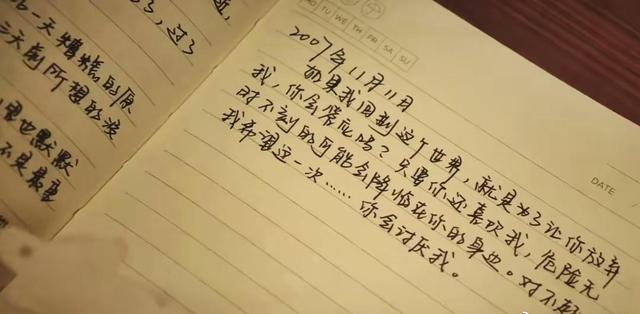 一天
三天 所想的
也默默
不是最
过了
MO TU WE TH FR SA SU
DATE
2007年11月11日
如果我回到这个世界,就是为了让你放弃
我,你会答应吗?只要你还喜欢我,危险无
时不刻的可能会降临在你的身边。对不起
我希望这一次……你会讨厌我。